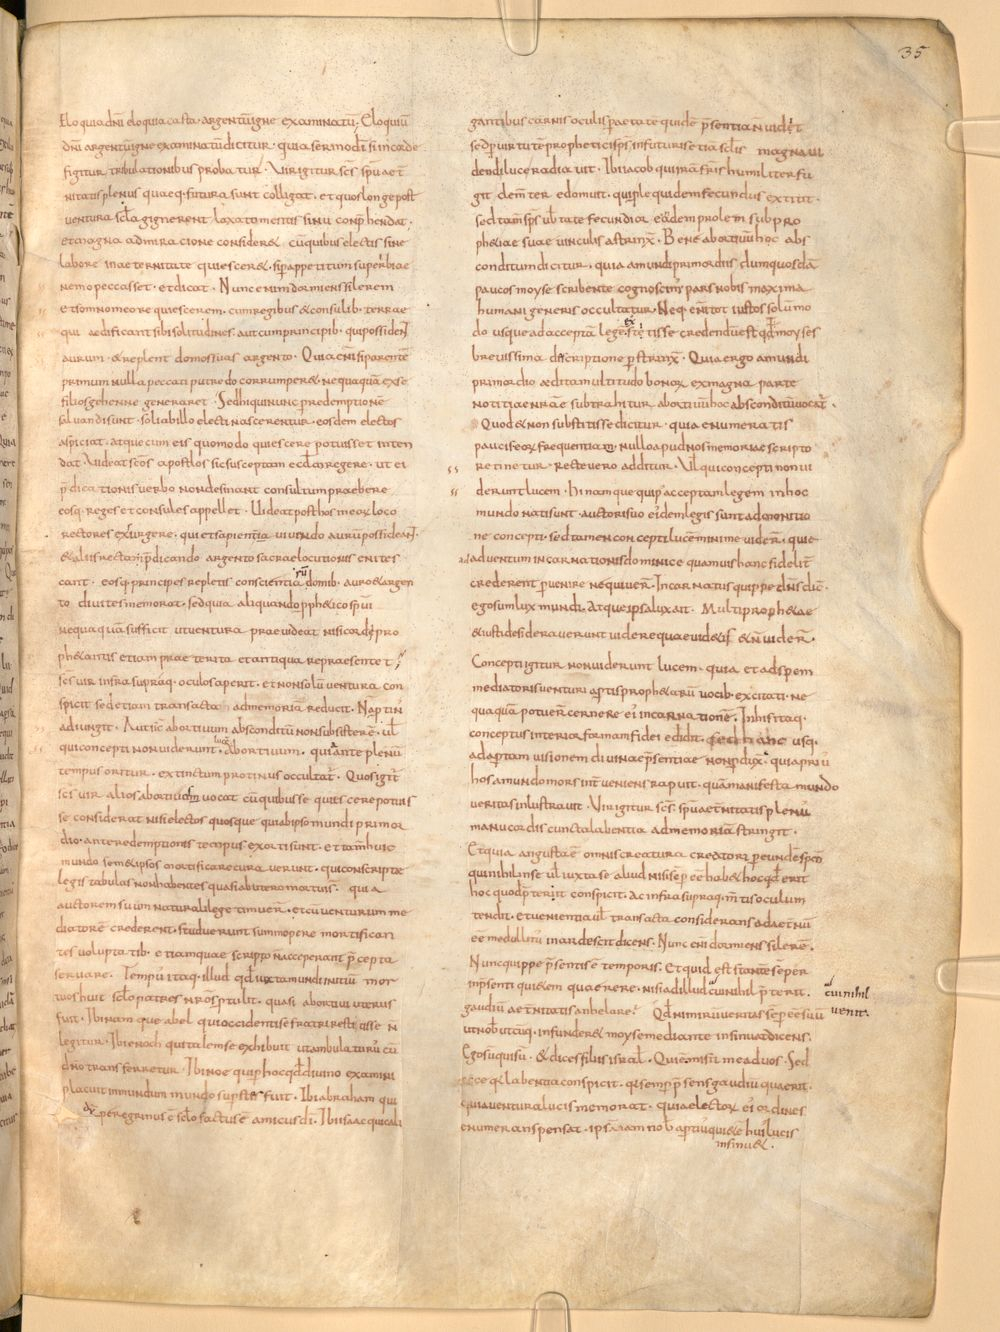 35
Eloquia dñi eloquia casta · argentũ igne examinatũ; Eloquiũ
dñi argentũ igne examinatũ dicitur · quia sermo dñi si in corde
figitur tribulationibus probatur · Vir igitur scs spũ aet
nitatis plenus quaeq· futura sunt colligat · et quos longe post
ventura scła gignerent laxato mentis sinu conp̃hendat ·
et magna admiracione considere& · cũ quibus electis sine
labore in aeternitate quiescere& · si p appetitum superbiae
nemo peccasset · et dicat · Nunc enim dormiens silerem
et somno meo requiescerem · cum regibus & consulib· terrae
qui aedificant sibi solitudines · aut cum principib· qui possideñ
aurum · & replent domos suas argento · Quia eni si parentẽ
primum nulla peccati putredo corrumper& · nequaquã ex se
filios gehenne generaret · Sed hi qui nunc p redemptionẽ
salvandi sunt · soli ab illo electi nascerentur · eosdem electos
aspiciat · atque cum eis quomodo quiescere potuisset inten
dat · Videat scõs apostłos sic susceptam ecclãm regere · ut ei
p̃dicationis verbo non desinant consultum praebere
eosq· reges et consules appellet · Videat post hos in eoꝝ loco
rectores exurgere · qui et sapientia vivendo aurũ possideañ
& aliis recta p̃dicando argento sacrae locutionis enites
cant · eosq· principes repletis conscientiarũ domib· auro & argen
to divites memorat · Sed quia aliquando pph&ico spũi
nequaquã sufficit ut ventura praevideat nisi cordi pro
ph&antis etiam praeterita et antiqua repraesentet ;
scs vir infra supraq· oculos aperit · et non solũ ventura con
spicit sed etiam transacta ad memoriã reducit · Nã ptin
adiungit · Aut sic abortivum absconditũ non subsisterẽ · ul
qui concepti non viderunt lucẽ · Abortivum · quia ante plenũ
tempus oritur · extinctum protinus occultat̃ · Quos igit̃
scs vir alios abortivũ vocat cũ quibus se quiescere potuis
se considerat nisi electos quosque qui ab ipso mundi primor
dio · ante redemptionis tempus exorti sunt · et tam̃ huic
mundo sem&ipsos mortificare curaverunt · qui conscriptae
legis tabulas non habentes quasi ab utero mortui s · quia
auctorem suum naturali lege timuer̃ · et cũ venturum me
diatorẽ crederent · studuerunt summopere mortifican
tes voluptatib· etiam quae scripto ñ acceperant p̃cepta
servare · Tempus itaq· illud qd iuxta mundi initiũ mor
tuos huic sclo patres nr̃os ptulit · quasi abortivi uterus
fuit · Ibi namque abel qui occidenti se fratri restitisse ñ
legitur · Ibi enoch qui talem se exhibuit ut ambulaturus cũ
dño transferretur · Ibi noe qui p hoc qđ divino examini
placuit in mundum mundo supstes fuit · Ibi abraham qui
dũ peregrinus ẽ scło factus ẽ amicus di · Ibi isaac qui cali
gantibus carnis oculis p aetate quidẽ p̃sentia ñ vidẽt
sed p virtutẽ propheticisps in futuris etiã sclis magna vi
dendi luce radiavit · Ibi iacob qui irã fr̃is humiliter fu
git clem̃ter edomuit · qui ple quidem fecundus extitit ·
sed tam̃ sps ubertate fecundior eãdem prolem sub pro
ph&iae suae vinculis astrinx · Bene abortivũ hoc abs
conditum dicitur · quia a mundi primordiis dum quosdã
paucos moyse scribente cognoscim̃ pars nobis maxima
humani generis occultatur · Neq· enĩ tot iustos solũmo
do usque ad accepta legẽ extitisse credendũ est qđ moyses
brevissima discriptione pstrinx · Quia ergo a mundi
primordio aedita multitudo bonoꝝ ex magna parte
notitiae nr̃ae subtrahitur abortivũ hoc absconditũ vocat̃ ·
Quod & non substitisse dicitur · quia enumeratis
paucis eoꝝ frequentiam nullo apud nos memoriae scripto
retinetur · Recte vero additur · Vel qui concepti non vi
derunt lucem · Hi namque qui p acceptam legem in hoc
mundo nati sunt · auctori suo eidem legis sunt admonitio
ne concepti · sed tamen concepti lucẽ minime viderũ · quie
adventum incarnationis dominice quamvis hanc fidelit̃
crederent pvenire nequiverũ · Incarnatus quippe dñs dic̃ ·
Ego sum lux mundi · Atque ipsa lux ait · Multi proph&ae
& iusti desideraverunt videre quae vid&is & ñ viderũ ·
Concepti igitur non viderunt lucem · quia et ad spem
mediatoris venturi aptis proph&arũ vocib· excitati · ne
quaquã potuer̃ cernere ei incarnationẽ · In his itaq·
conceptus interior formam fidei edidit · sed hanc usq·
ad aptam visionem divinae p̃sentiae non pdux · quia priu
hos a mundo mors interveniens rapuit · quã manifesta mundo
veritas inlustravit · Vir igitur scs · spũ aet̃nitatis plenũ
manu cordis cuncta labentia ad memoriã stringit ·
Et quia angusta ẽ omnis creatura creatori p eunde spm̃
qui nihil in se ul iuxta se aliud nisi sep eẽ hab& & hoc qđ erit
hoc quod p̃terit conspicit · ac infra supraq· m̃tis oculum
tendit · et venientia ul transacta considerans ad aet̃nũ
eẽ medullitũ inardescit dicens · Nunc eni dormiens silerẽ ·
Nunc quippe p̃sentis ẽ temporis · Et quid est stantẽ semper
in p̃senti quietem quaerere · nisi ad illud cui nihil p̃terit ·
cui nihil
venit ·
gaudiũ aet̃nitatis anhelare · Qđ nimirũ veritas sep eẽ suũ
ut nob utcũq· infunder& moyse mediante insinuat dicens ·
Ego sũ qui sũ · & dices filiis isrł · Qui ẽ misit me ad vos · Sed
ecce q labentia conspicit · q sempp̃sens gaudiũ quaerit ·
quia ventura lucis memorat · quia electoꝝ ei ordines
enumerans pensat · ipsã iam nob aptiũ qui&e hui lucis
insinu& ·